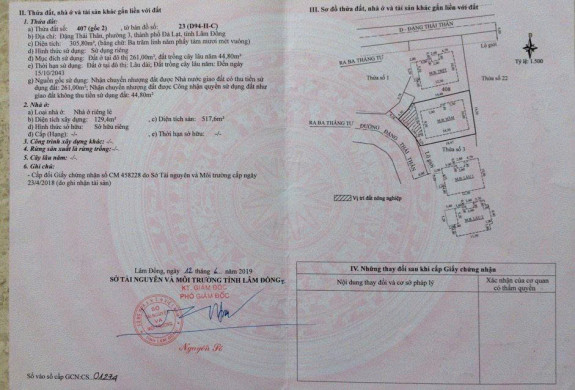 II. Thửa đất, nhà ở và tài sản khác gắn liền với đất
1. Thửa đất:
a) Thửa đất số: 407 (gốc 2), tờ bản đồ số: 23 (D94-II-C)
b) Địa chỉ: Đặng Thái Thân, phường 3, thành phố Đà Lạt, tỉnh Lâm Đồng
c) Diện tích: 305,80m², (bằng chữ: Ba trăm linh năm phẩy tám mươi mét vuông)
d) Hình thức sử dụng: Sử dụng riêng
đ) Mục đích sử dụng: Đất ở tại đô thị 261,00m²; đất trồng cây lâu năm 44,80m²
e) Thời hạn sử dụng: Đất ở tại đô thị: Lâu dài; Đất trồng cây lâu năm: Đến ngày
15/10/2043
g) Nguồn gốc sử dụng: Nhận chuyển nhượng đất được Nhà nước giao đất có thu tiền sử
dụng đất: 261,00m²; Nhận chuyển nhượng đất được Công nhận quyền sử dụng đất như
giao đất không thu tiền sử dụng đất: 44,80m²
2. Nhà ở:
a) Loại nhà ở: Nhà ở riêng lẻ
b) Diện tích xây dựng: 129,4m² c) Diện tích sàn: 517,6m²
d) Hình thức sở hữu: Sở hữu riêng
đ) Cấp (Hạng): -/- e) Thời hạn sở hữu: -/-
3. Công trình xây dựng khác: -/-
4. Rừng sản xuất là rừng trồng: -/-
5. Cây lâu năm: -/-
6. Ghi chú:
- Cấp đổi Giấy chứng nhận số CM 458228 do Sở Tài nguyên và Môi trường cấp ngày
23/4/2018 (do ghi nhận tài sản)
Lâm Đồng, ngày 12 tháng 6 năm 2019
SỞ TÀI NGUYÊN VÀ MÔI TRƯỜNG TỈNH LÂM ĐỒNG
KT. GIÁM ĐỐC
PHÓ GIÁM ĐỐC
Số vào sổ cấp GCN:CS 01271
III. Sơ đồ thửa đất, nhà ở và tài sản khác gắn liền với đất
Đ - ĐẶNG THÁI THÂN
RA BA THÁNG TƯ
Lộ giới
Tỷ lệ 1:500
Thửa số 1
Thửa số 22
RA BA THÁNG TƯ
ĐƯỜNG ĐẶNG THÁI THÂN
Lộ giới
Thửa số 3
Vị trí đất nông nghiệp
IV. Những thay đổi sau khi cấp Giấy chứng nhận
Nội dung thay đổi và cơ sở pháp lý
Xác nhận của cơ quan
có thẩm quyền